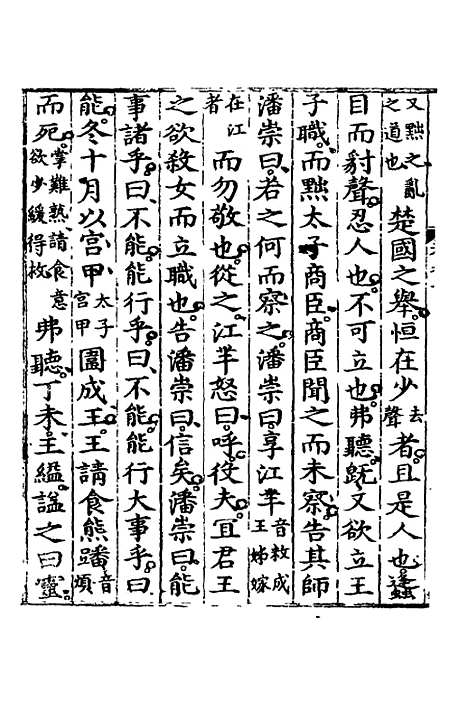 又黜之亂之道也楚國之舉恒在少去聲者且是人也蠭
目而豺聲忍人也不可立也弗聽旣又欲立王
子職而黜太子商臣商臣聞之而未察告其師
潘崇曰若之何而察之潘崇曰享江芊音敉成王姊嫁
在江者而勿敬也從之江芊怒曰呼役夫宜君王
之欲殺女而立職也告潘崇曰信矣潘崇曰能
事諸乎曰不能能行乎曰不能能行大事乎曰
能冬十月以宮甲太子宮甲圍成王王請食熊蹯音煩
而死掌難熟請食意欲少緩得救弗聽丁未王縊諡之曰靈